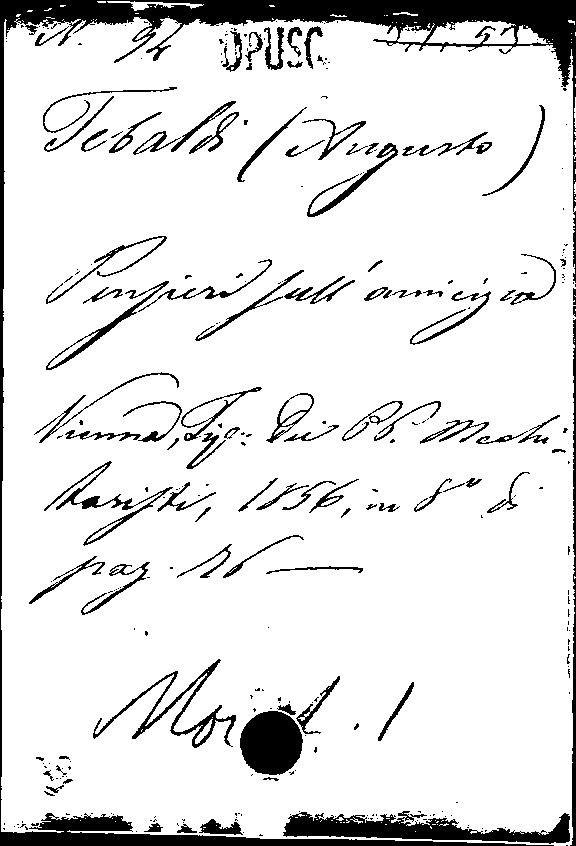 N. 94 OPUSC. 3.1.53
Tebaldi (Augusto)
Pensieri sull' amicizia
Vienna, Tip: dei PP. Mechi-
taristi, 1856, in 8° di
pag. 26 —
1